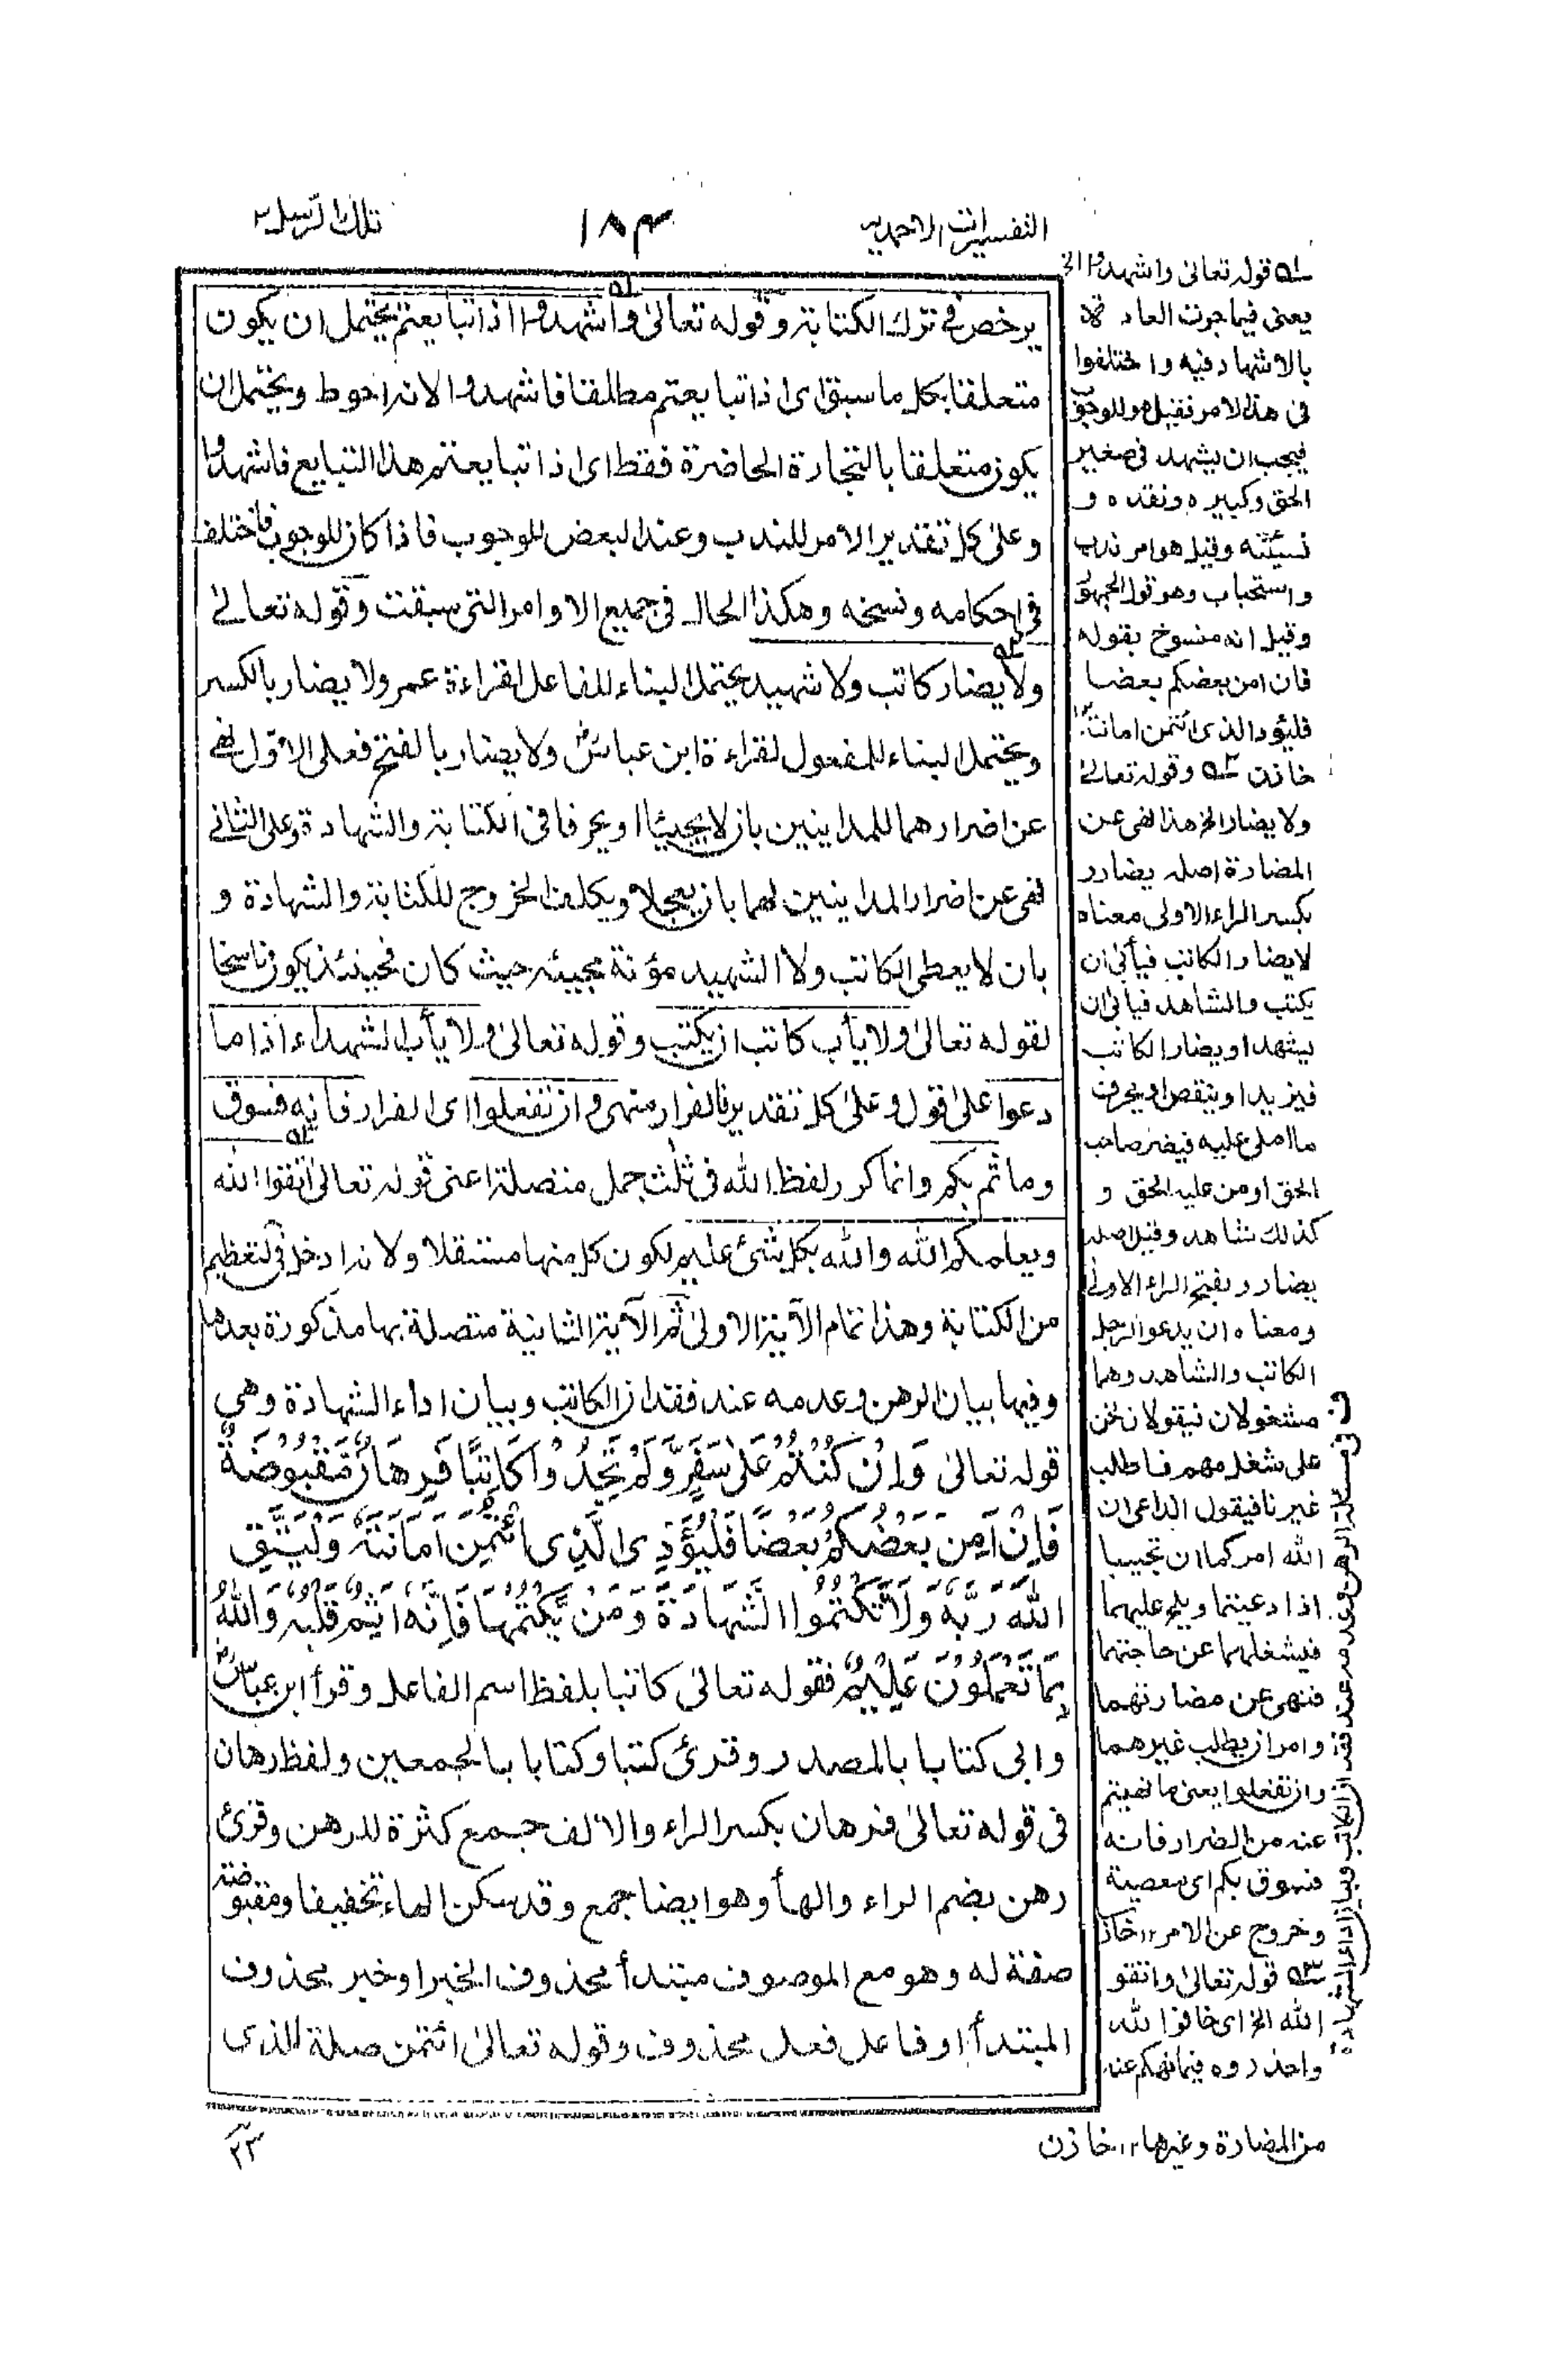 التفسيرات الاحمدية
١٨٣
تلك الرسل ٣
يرخص فى ترك الكتابة وقوله تعالى واشهدوا اذا تبايعتم يحتمل ان يكون
متعلقا بكل ما سبق اى اذا تبايعتم مطلقا فاشهدوا لانه احوط ويحتمل ان
يكون متعلقا بالتجارة الحاضرة فقط اى اذا تبايعتم هذا التبايع فاشهدوا
وعلى كل تقدير الامر للندب وعند البعض للوجوب فاذا كان للوجوب فاختلف
فى احكامه ونسخه وهكذا الحال فى جميع الاوامر التى سبقت وقوله تعالى
ولا يضار كاتب ولا شهيد يحتمل البناء للفاعل لقراءة عمر ولا يضار بالكسر
ويحتمل البناء للمفعول لقراءة ابن عباس ولا يضار بالفتح فعلى الاول نهى
عن اضرارهما للمداينين بان لا يجيئا او يحرفا فى الكتابة والشهادة وعلى الثانى
نهى عن اضرار المداينين لهما بان يعجلا ويكلفا الخروج للكتابة والشهادة و
بان لا يعطى الكاتب ولا الشهيد مؤنة مجيئه حيث كان فحينئذ يكون ناسخا
لقوله تعالى ولا يأب كاتب ان يكتب وقوله تعالى ولا يأب الشهداء اذا ما
دعوا على قول وعلى كل تقدير فالفرار منهى وان تفعلوا اى الفرار فانه فسوق
ومأثم بكم وانما كرر لفظ الله فى ثلث جمل منفصلة اعنى قوله تعالى اتقوا الله
ويعلمكم الله والله بكل شئ عليم لكون كل منها مستقلا ولانه ادخل فى التعظيم
من الكتابة وهذا تمام الآية الاولى ثم الآية الثانية متصلة بها مذكورة بعدها
وفيها بيان الرهن وعدمه عند فقدان الكاتب وبيان اداء الشهادة وهى
قوله تعالى وَاِنْ كُنْتُمْ عَلٰى سَفَرٍ وَّلَمْ تَجِدُوْا كَاتِبًا فَرِهَانٌ مَّقْبُوْضَةٌ
فَاِنْ اَمِنَ بَعْضُكُمْ بَعْضًا فَلْيُؤَدِّ الَّذِى اؤْتُمِنَ اَمَانَتَهٗ وَلْيَتَّقِ
اللّٰهَ رَبَّهٗ وَلَا تَكْتُمُوا الشَّهَادَةَ وَمَنْ يَّكْتُمْهَا فَاِنَّهٗ اٰثِمٌ قَلْبُهٗ وَاللّٰهُ
بِمَا تَعْمَلُوْنَ عَلِيْمٌ فقوله تعالى كاتبا بلفظ اسم الفاعل وقرأ ابن عباس
وابى كتابا بالمصدر وقرئ كتبا وكتابا بالجمعين ولفظ رهان
فى قوله تعالى فرهان بكسر الراء والالف جمع كثرة للرهن وقرئ
رهن بضم الراء والهأ وهو ايضا جمع وقد سكن الهاء تخفيفا ومقبوضة
صفة له وهو مع الموصوف مبتدأ محذوف الخبر او خبر محذوف
المبتدأ او فاعل فعل محذوف وقوله تعالى ائتمن صلة للذى
٢٣
له قوله تعالى واشهدوا الخ
يعنى فيما جرت العادة
بالاشهاد فيه واختلفوا
فى هذا الامر فقيل هو للوجوب
فيجب ان يشهد فى صغير
الحق وكبيره ونقده و
نسيئته وقيل هو امر ندب
واستحباب وهو قول الجمهور
وقيل انه منسوخ بقوله
فان امن بعضكم بعضا
فليؤد الذى ائتمن امانته ١٢
خازن ٢ه وقوله تعالى
ولا يضار الخ هذا نهى عن
المضارة اصله يضارر
بكسر الراء الاولى معناه
لا يضار الكاتب فيأبى ان
يكتب والشاهد فيأبى ان
يشهد او يضار الكاتب
فيزيد او ينقص او يحرف
ما املى عليه فيضر صاحب
الحق او من عليه الحق و
كذلك شاهد وقيل اصله
يضارر بفتح الراء الاولى
ومعناه ان يدعو الرجل
الكاتب والشاهد وهما
مشغولان فيقولان نحن
على شغل مهم فاطلب
غيرنا فيقول الداعى ان
الله امركما ان تجيبا
اذا دعيتما ويلح عليهما
فيشغلهما عن حاجتهما
فنهى عن مضارتهما
وامر ان يطلب غيرهما
وان تفعلوا يعنى ما نهيتم
عنه من الضرار فانه
فسوق بكم اى معصية
وخروج عن الامر ١٢ خازن
٣ه قوله تعالى واتقوا
الله الخ اى خافوا الله
واحذروه فيما نهاكم عنه
من المضارة وغيرها ١٢ خازن
فى مسئلة الرهن وعدمه عند فقدان الكاتب وبيان اداء الشهادة